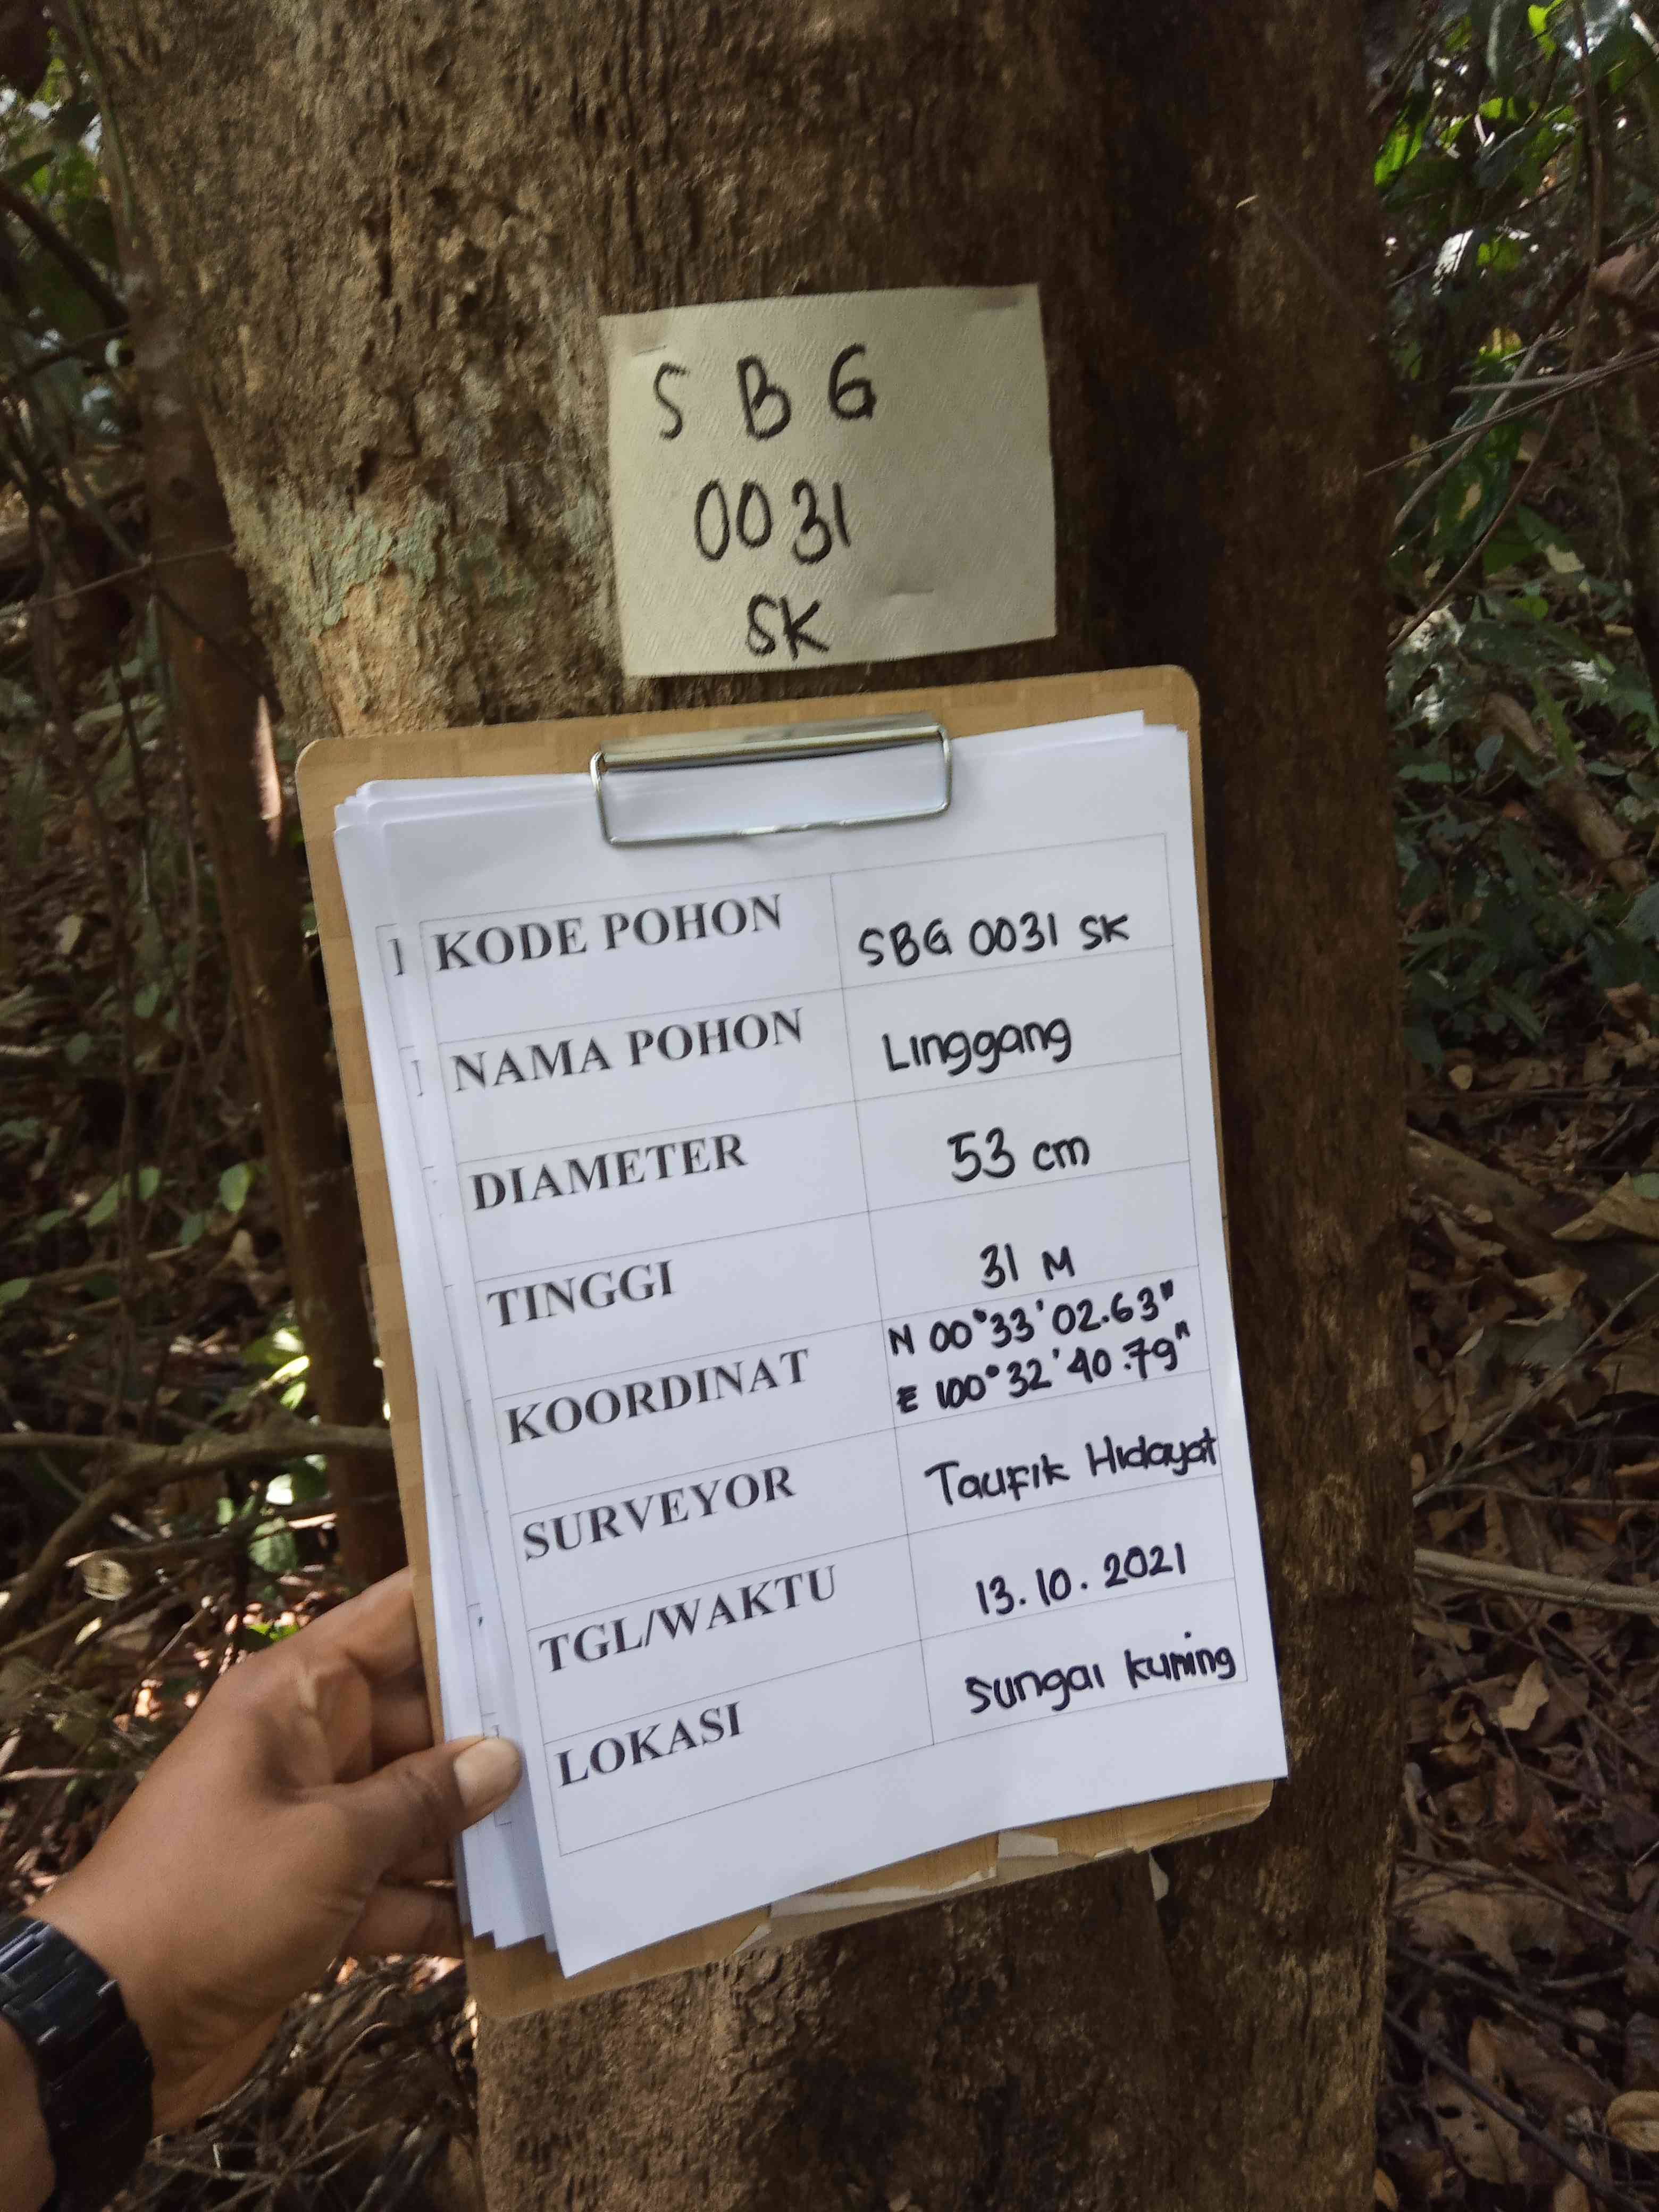 S B G
0031
SK
KODE POHON SBG 0031 SK
NAMA POHON Linggang
DIAMETER 53 cm
TINGGI 31 M
KOORDINAT N 00°33'02.63"
E 100°32'40.79"
SURVEYOR Taufik Hidayat
TGL/WAKTU 13.10.2021
LOKASI Sungai kuning